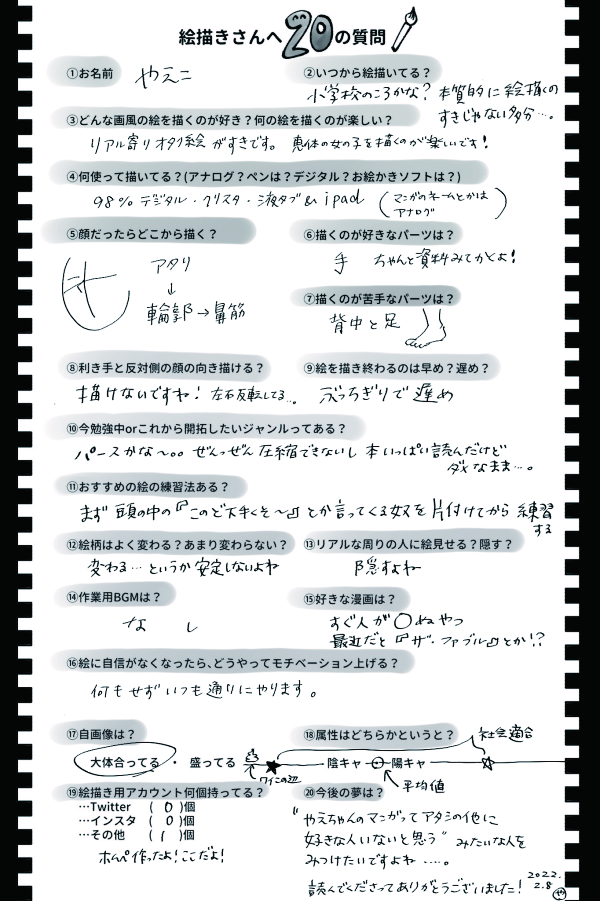 絵描きさんへ20の質問
①お名前 やえこ
②いつから絵描いてる？
小学校のころかな？本質的に絵描くの
すきじゃない多分…。
③どんな画風の絵を描くのが好き？何の絵を描くのが楽しい？
リアル寄りオタク絵がすきです。 恵体の女の子を描くのが楽しいです！
④何使って描いてる？(アナログ？ペンは？デジタル？お絵かきソフトは？)
98%デジタル・クリスタ・液タブ& ipad (マンガのネームとかは
アナログ)
⑤顔だったらどこから描く？
アタリ
↓
輪郭→鼻筋
⑥描くのが好きなパーツは？
手 ちゃんと資料みてかくよ！
⑦描くのが苦手なパーツは？
背中と足
⑧利き手と反対側の顔の向き描ける？
描けないですね！ 左右反転してる…。
⑨絵を描き終わるのは早め？遅め？
ぶっちぎりで遅め
⑩今勉強中orこれから開拓したいジャンルってある？
パースかな〜。。ぜんっぜん圧縮できないし 本いっぱい読んだけど
ダメなまま…。
⑪おすすめの絵の練習法ある？
まず頭の中の『このど下手くそ〜』とか言ってくる奴を片付けてから練習
する
⑫絵柄はよく変わる？あまり変わらない？
変わる…というか安定しないよね
⑬リアルな周りの人に絵見せる？隠す？
隠すよね
⑭作業用BGMは？
なし
⑮好きな漫画は？
すぐ人が〇ぬやつ
最近だと『ザ・ファブル』とか!?
⑯絵に自信がなくなったら、どうやってモチベーション上げる？
何もせずいつも通りにやります。
⑰自画像は？
大体合ってる ・ 盛ってる
⑱属性はどちらかというと？
社会適合
陰キャ 陽キャ
ワイこの辺
平均値
⑲絵描き用アカウント何個持ってる？
…Twitter (0)個
…インスタ (0)個
…その他 (1)個
ホムペ作ったよ！ここだよ！
⑳今後の夢は？
"やえちゃんのマンガってアタシの他に
好きな人いないと思う" みたいな人を
みつけたいですよね….。
読んでくださってありがとうございました！
2022.
2.8
や